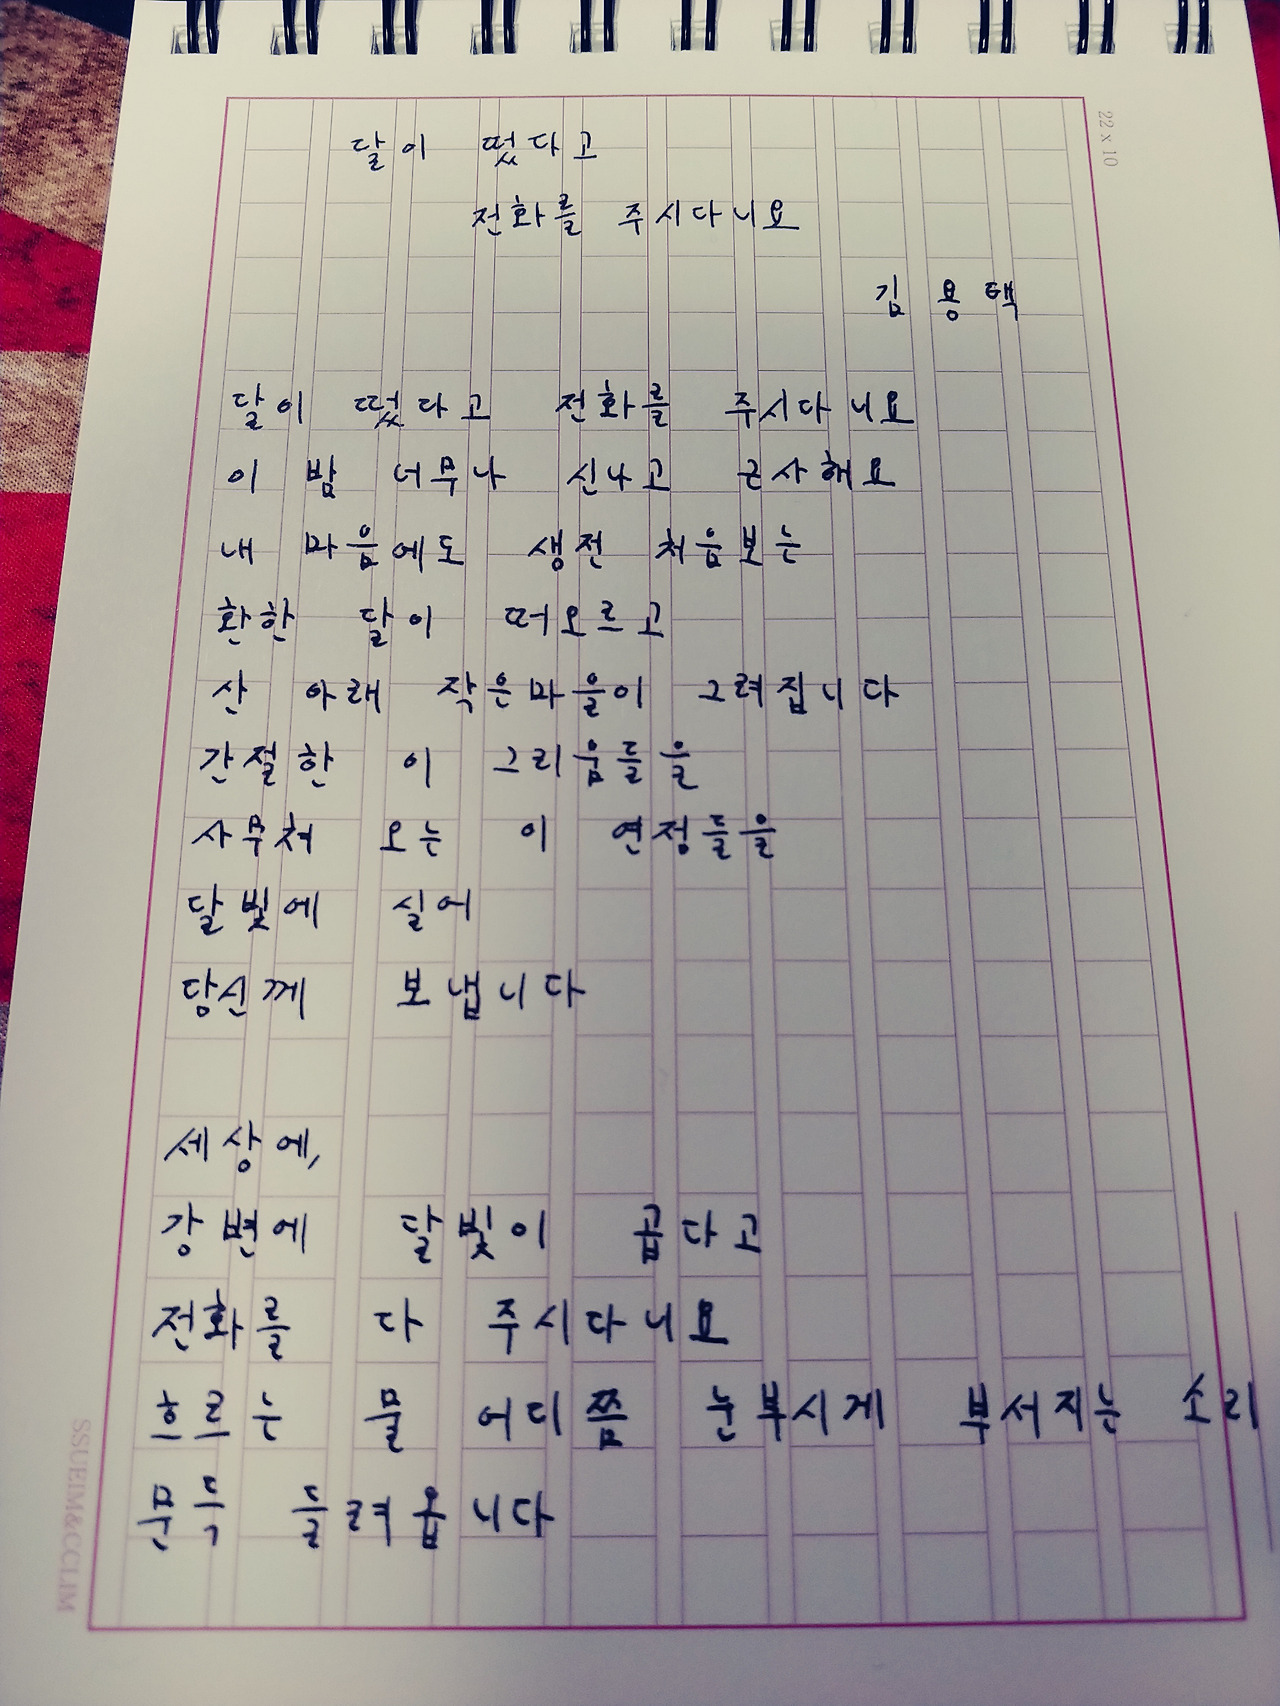 22 x 10
달이 떴다고
전화를 주시다니요
김용택
달이 떴다고 전화를 주시다니요
이 밤 너무나 신나고 근사해요
내 마음에도 생전 처음보는
환한 달이 떠오르고
산 아래 작은마을이 그려집니다
간절한 이 그리움들을
사무쳐 오는 이 연정들을
달빛에 실어
당신께 보냅니다
세상에,
강변에 달빛이 곱다고
전화를 다 주시다니요
흐르는 물 어디쯤 눈부시게 부서지는 소리
문득 들려옵니다
SSUEIM&CCLIM